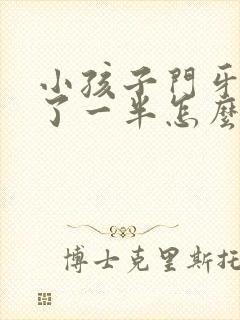 小孩子門牙
了一半怎麼
博士克里斯托